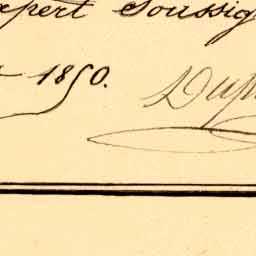 xpert Soussig
1850.
Dup